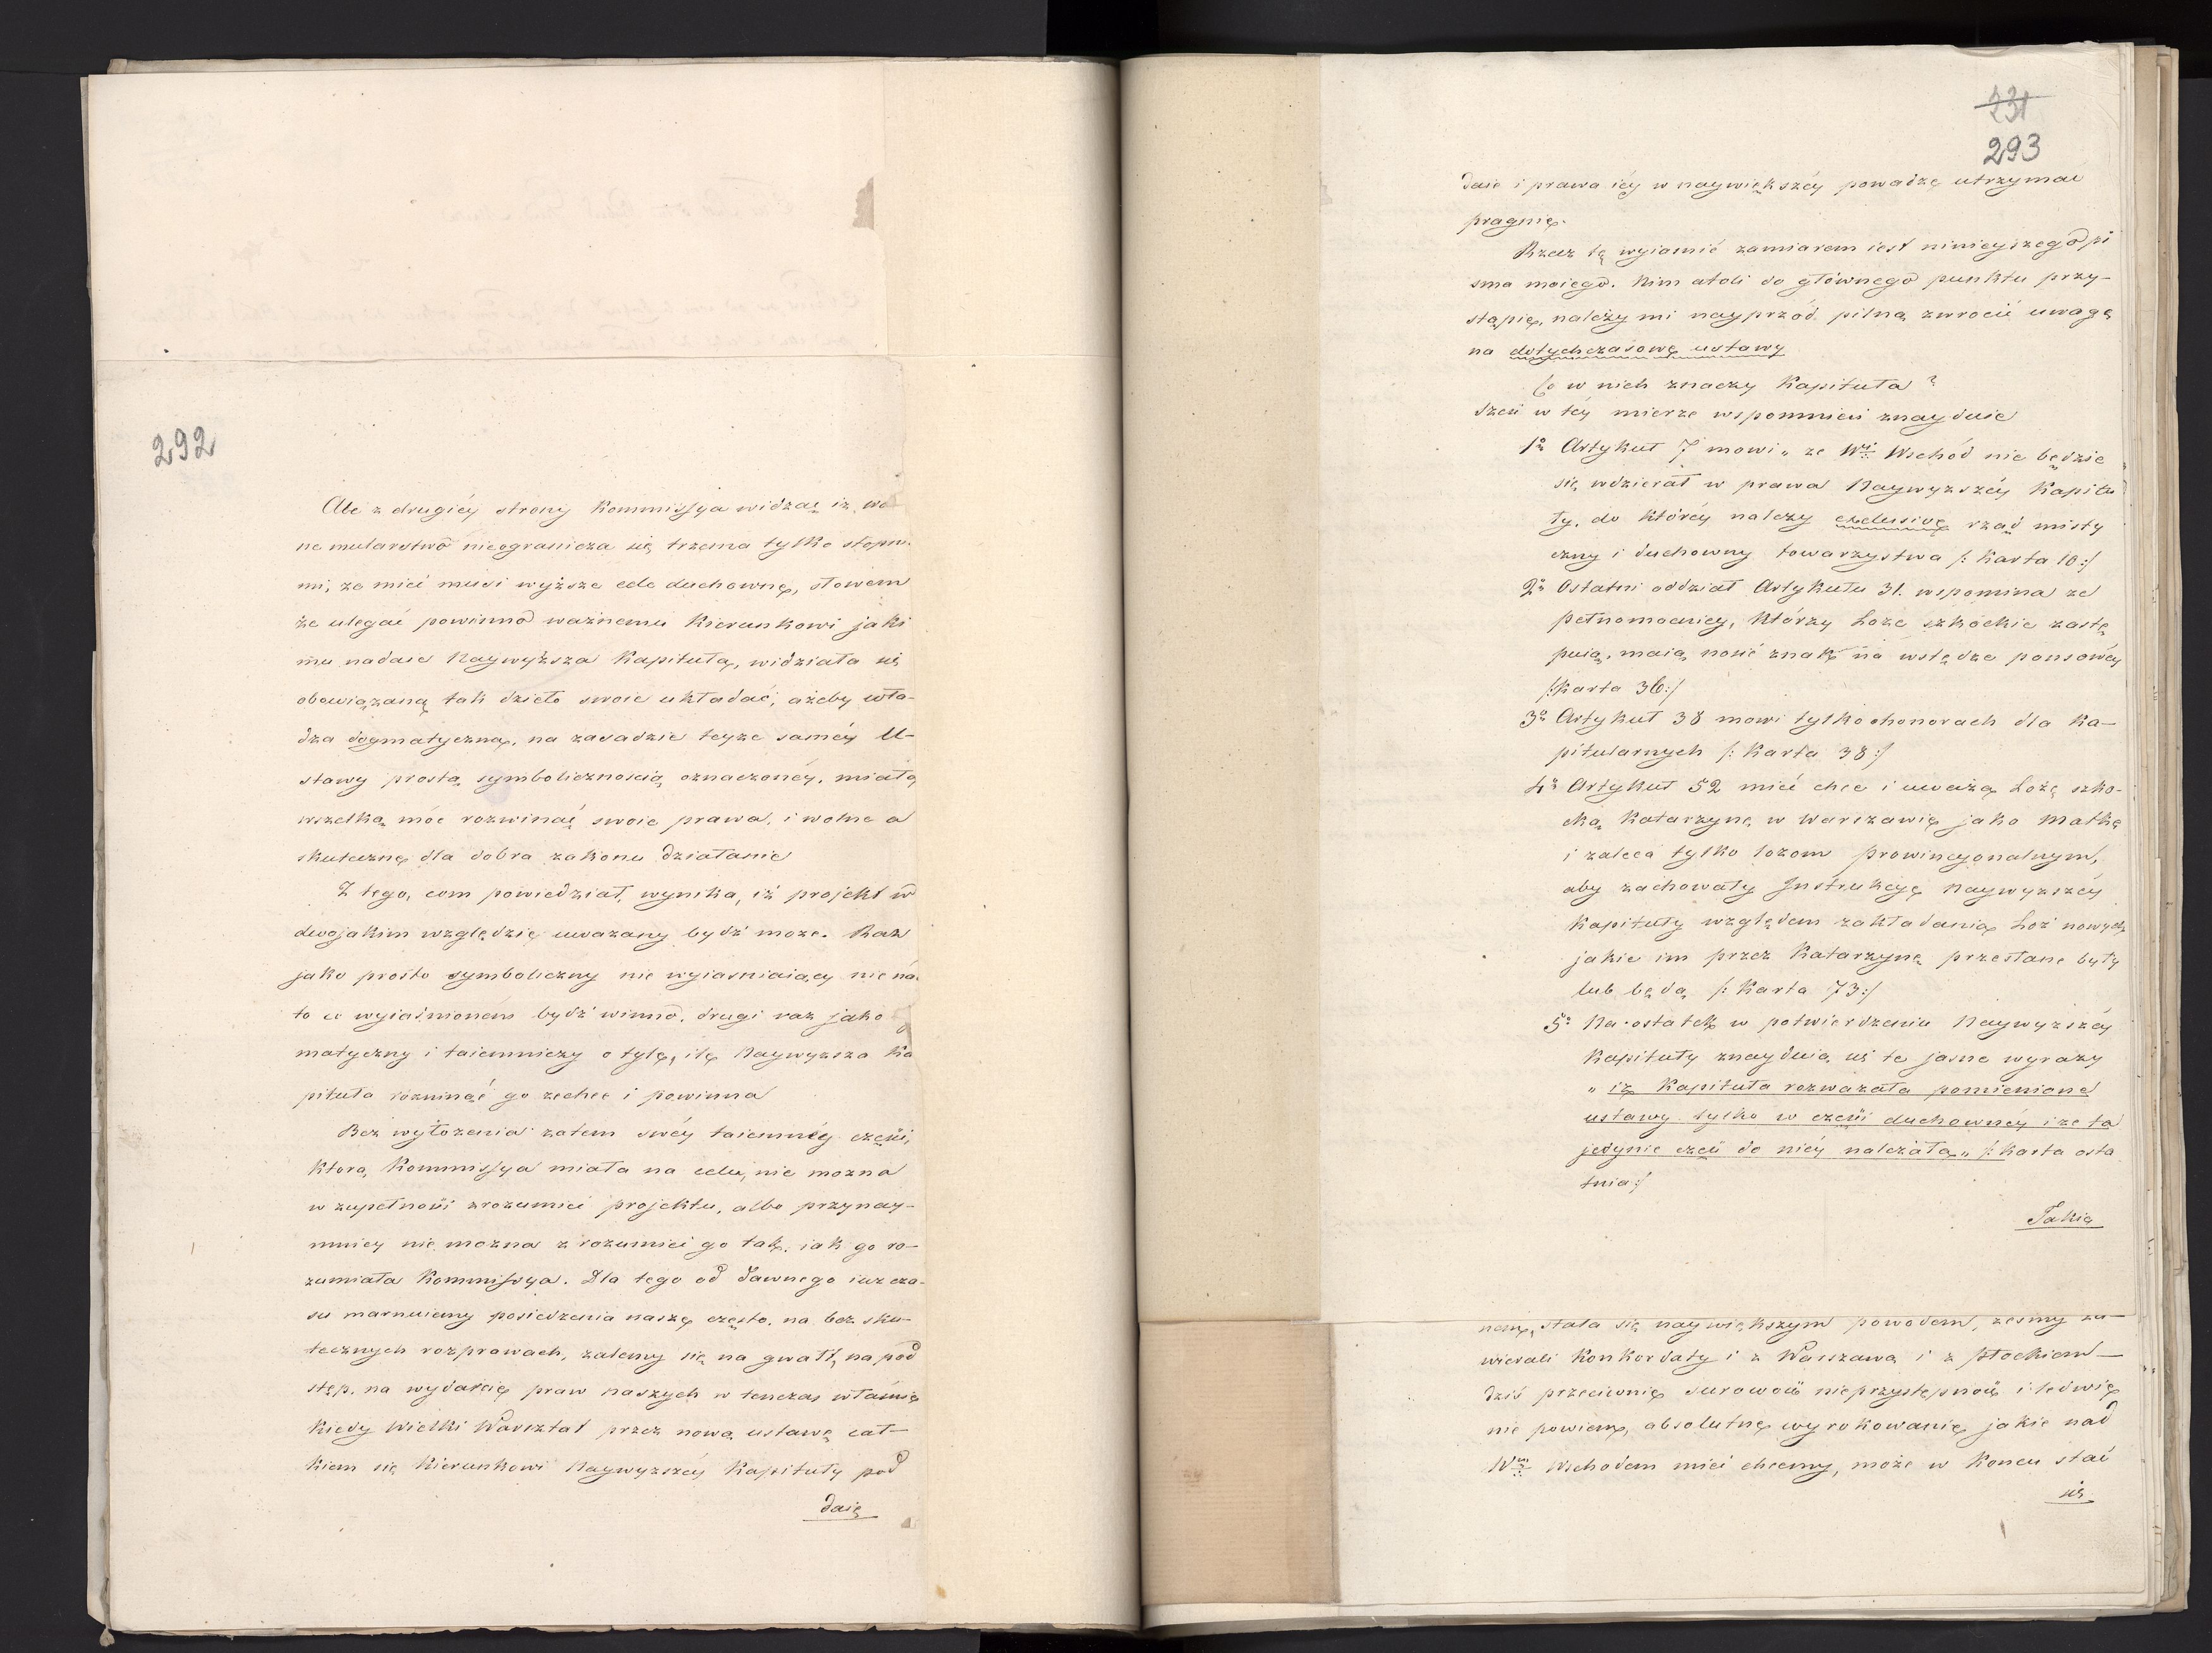 292
Ale z drugiéy strony Kommissya widząc iż wol
ne mularstwo nieogranicza się trzema tylko stopn.
mi, że mieć musi wyższe cele duchowne, słowem
że ulegać powinno ważnemu kierunkowi jaki
mu nadaie Naywyższa Kapituła, widziała się
obowiązaną tak dzieło swoie układać, ażeby wła-
dza dogmatyczna, na zasadzie teyże saméy U-
stawy prostą symbolicznoscią oznaczonéy, miała
wszelką móc rozwinąć swoie prawa, i wolne a
skuteczne dla dobra zakonu działanie
Z tego, com powiedział, wynika, iż projekt w
dwojakim względzie uważany bydź może. Raz
jako prosto symboliczny nie wyiasniaiący nic na
to co wyiaśnioném bydź winno, drugi raz jako
matyczny i taiemniczy o tyle, ile Naywyższa Ka
pituła rozwinąć go zechce i powinna
Bez wyłożenia zatem swéy taiemnéy części,
ktora, Kommissya miała na celu, nie można
w zupełności zrozumieć projektu, albo przynay-
mniéy nie można zrozumieć go tak, iak go ro-
zumiała Kommissya. Dla tego od dawnego iuż cza-
su marnuiemy posiedzenia nasze często, na bez sku-
tecznych rozprawach, żalemy się na gwałt, na pod
stęp, na wydarcie praw naszych w tenczas właśnie
kiedy Wielki Warsztat przez nową ustawę cał-
kiem się kierunkowi Naywyższéy Kapituły pod
daie
231
293
daie i prawa iéy w naywiększéy powadze utrzymać
pragnie.
Rzecz tę wyiasnić zamiarem iest ninieyszego pi
sma moiego. Nim atoli do głównego punktu przy-
stąpię, należy mi nayprzód pilną zwrocić uwagę
na dotychczasowe ustawy
Co w nich znaczy Kapituła?
Sześć w téy mierze wspomnień znayduie
1o Artykuł 7 mowi „ że Wi Wschód nie będzie
się wdzierał w prawa Naywyższéy Kapitu
ły, do któréy należy exclusive rząd misty
czny i duchowny towarzystwa /: Karta 10:/
2o Ostatni oddział Artykułu 31. wspomina że
pełnomocnicy, którzy Loże szkockie zastę
puią, maią nosić znak na wstędze ponsowéy
/:Karta 36:/
3o Artykuł 38 mowi tylko o honorach dla Ka-
pitularnych /: Karta 38:/
4o Artykuł 52 mieć chce i uważa Lożę szko-
cką Katarzynę w Warszawie jako Matkę
i zaleca tylko lożom prowincyonalnym,
aby zachowały Instrukcyę Naywyższéy
Kapituły względem zakładania Loż nowych
jakie im przez Katarzynę przesłane były
lub będą /: Karta 73:/
5o Na ostatek w potwierdzeniu Naywyższéy
Kapituły znayduią się te jasne wyrazy
„ iż Kapituła rozważała pomienione
ustawy tylko w części duchownéy i że ta
jedynie część do niéy należała „ /: Karta osta
tnia:/
Takie
nem, stała się naywiększym powodem, żeśmy za-
wierali Konkordaty i z Warszawą i z Płockiem
dziś przeciwnie surowość nieprzystępność i ledwie
nie powiem, absolutne wyrokowanie jakie nad
Wm Wschodem mieć chcemy, może w końcu stać
się